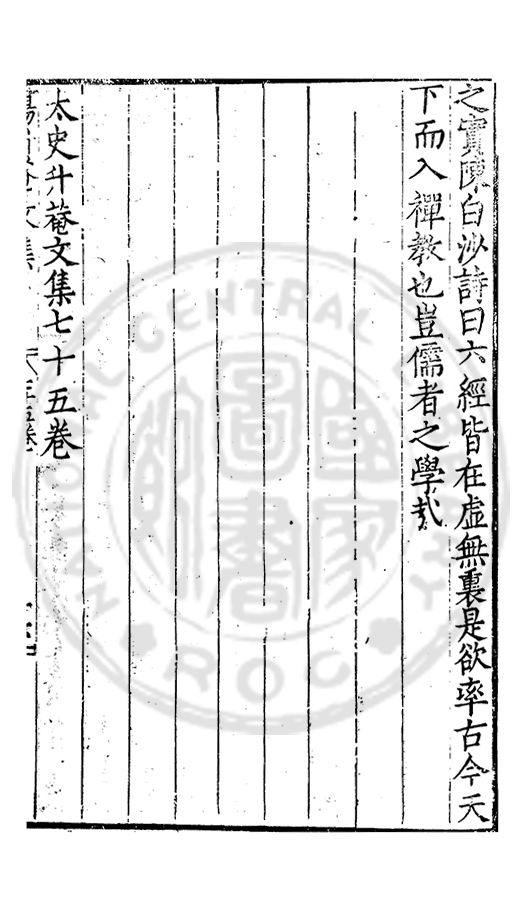 之實陳白沙詩曰六經皆在虛無裏是欲率古今天
下而入禪教也豈儒者之學哉
太史升菴文集七十五卷